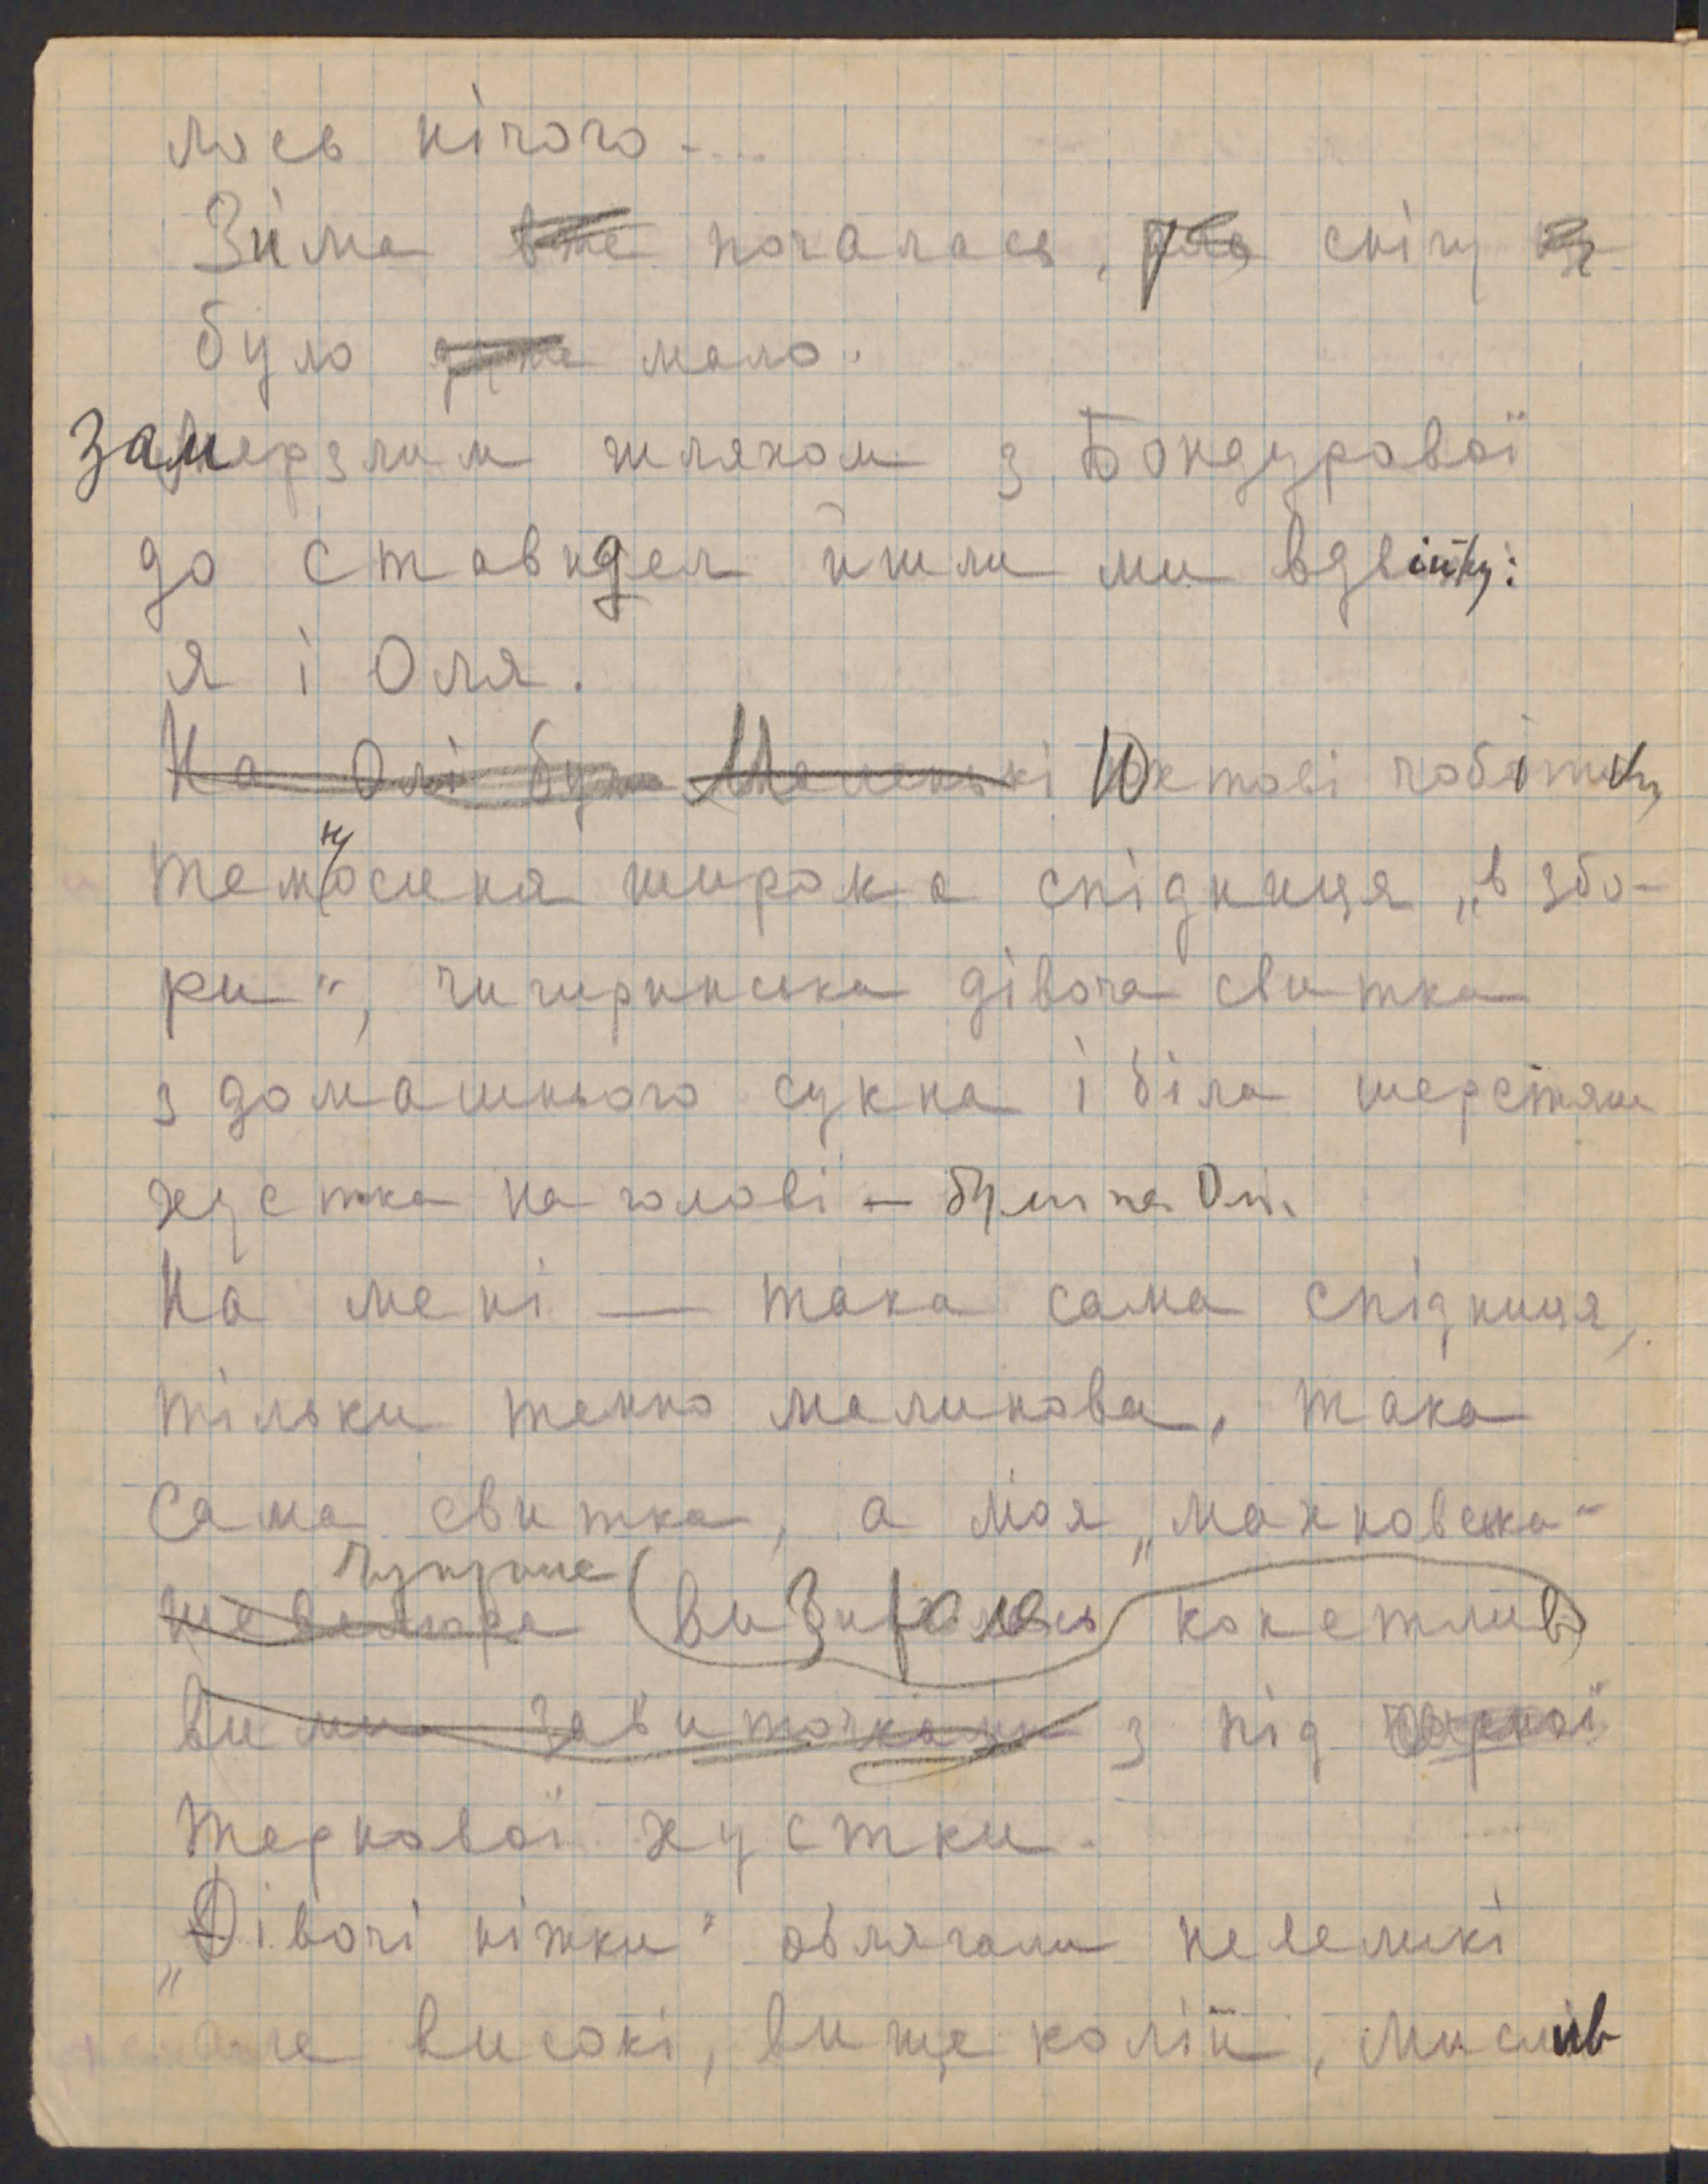 лось нічого....
Зима вже почалась, снігу
було дуже мало.
Замерзлим шляхом з Бондурової
до Ставидел йшли ми вдвійку:
я і Оля.
На Олі були Маленькі Юхтові чобітки,
темносиня широка спідниця „в збо-
ри“, чигиринська дівоча свитка
з домашнього сукна і біла шерстяна
хустка на голові — були на Олі.
На мені — така сама спідниця,
тільки темно малинова, така
сама свитка, а моя „махновська“
чуприна
шевелюра визирала кокетлив
вими завиточками з під чорної
тернової хустки.
„Дівочі ніжки“ облягали невеликі
але високі, вище колін, мислив